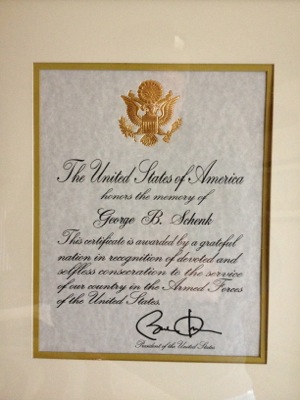 The United States of America
honors the memory of
George B. Schenk
This certificate is awarded by a grateful
nation in recognition of devoted and
selfless consecration to the service
of our country in the Armed Forces
of the United States.
President of the United States